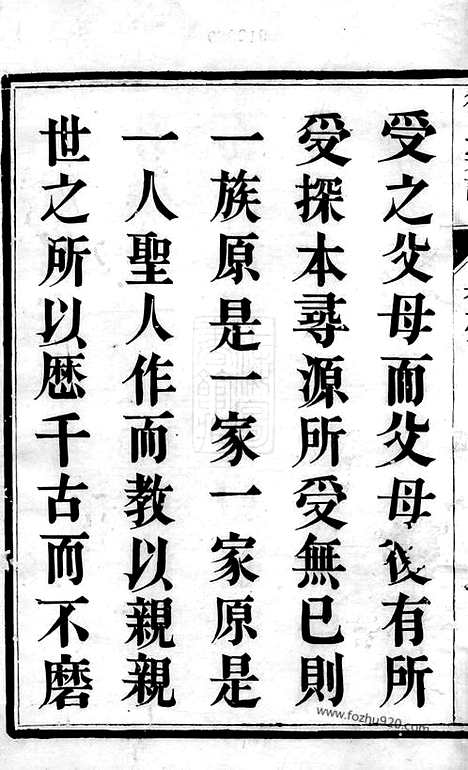 受之父母而父母復有所
受探本尋源所受無已則
一族原是一家一家原是
一人聖人作而教以親親
世之所以歴千古而不磨
www.fozhu920.com